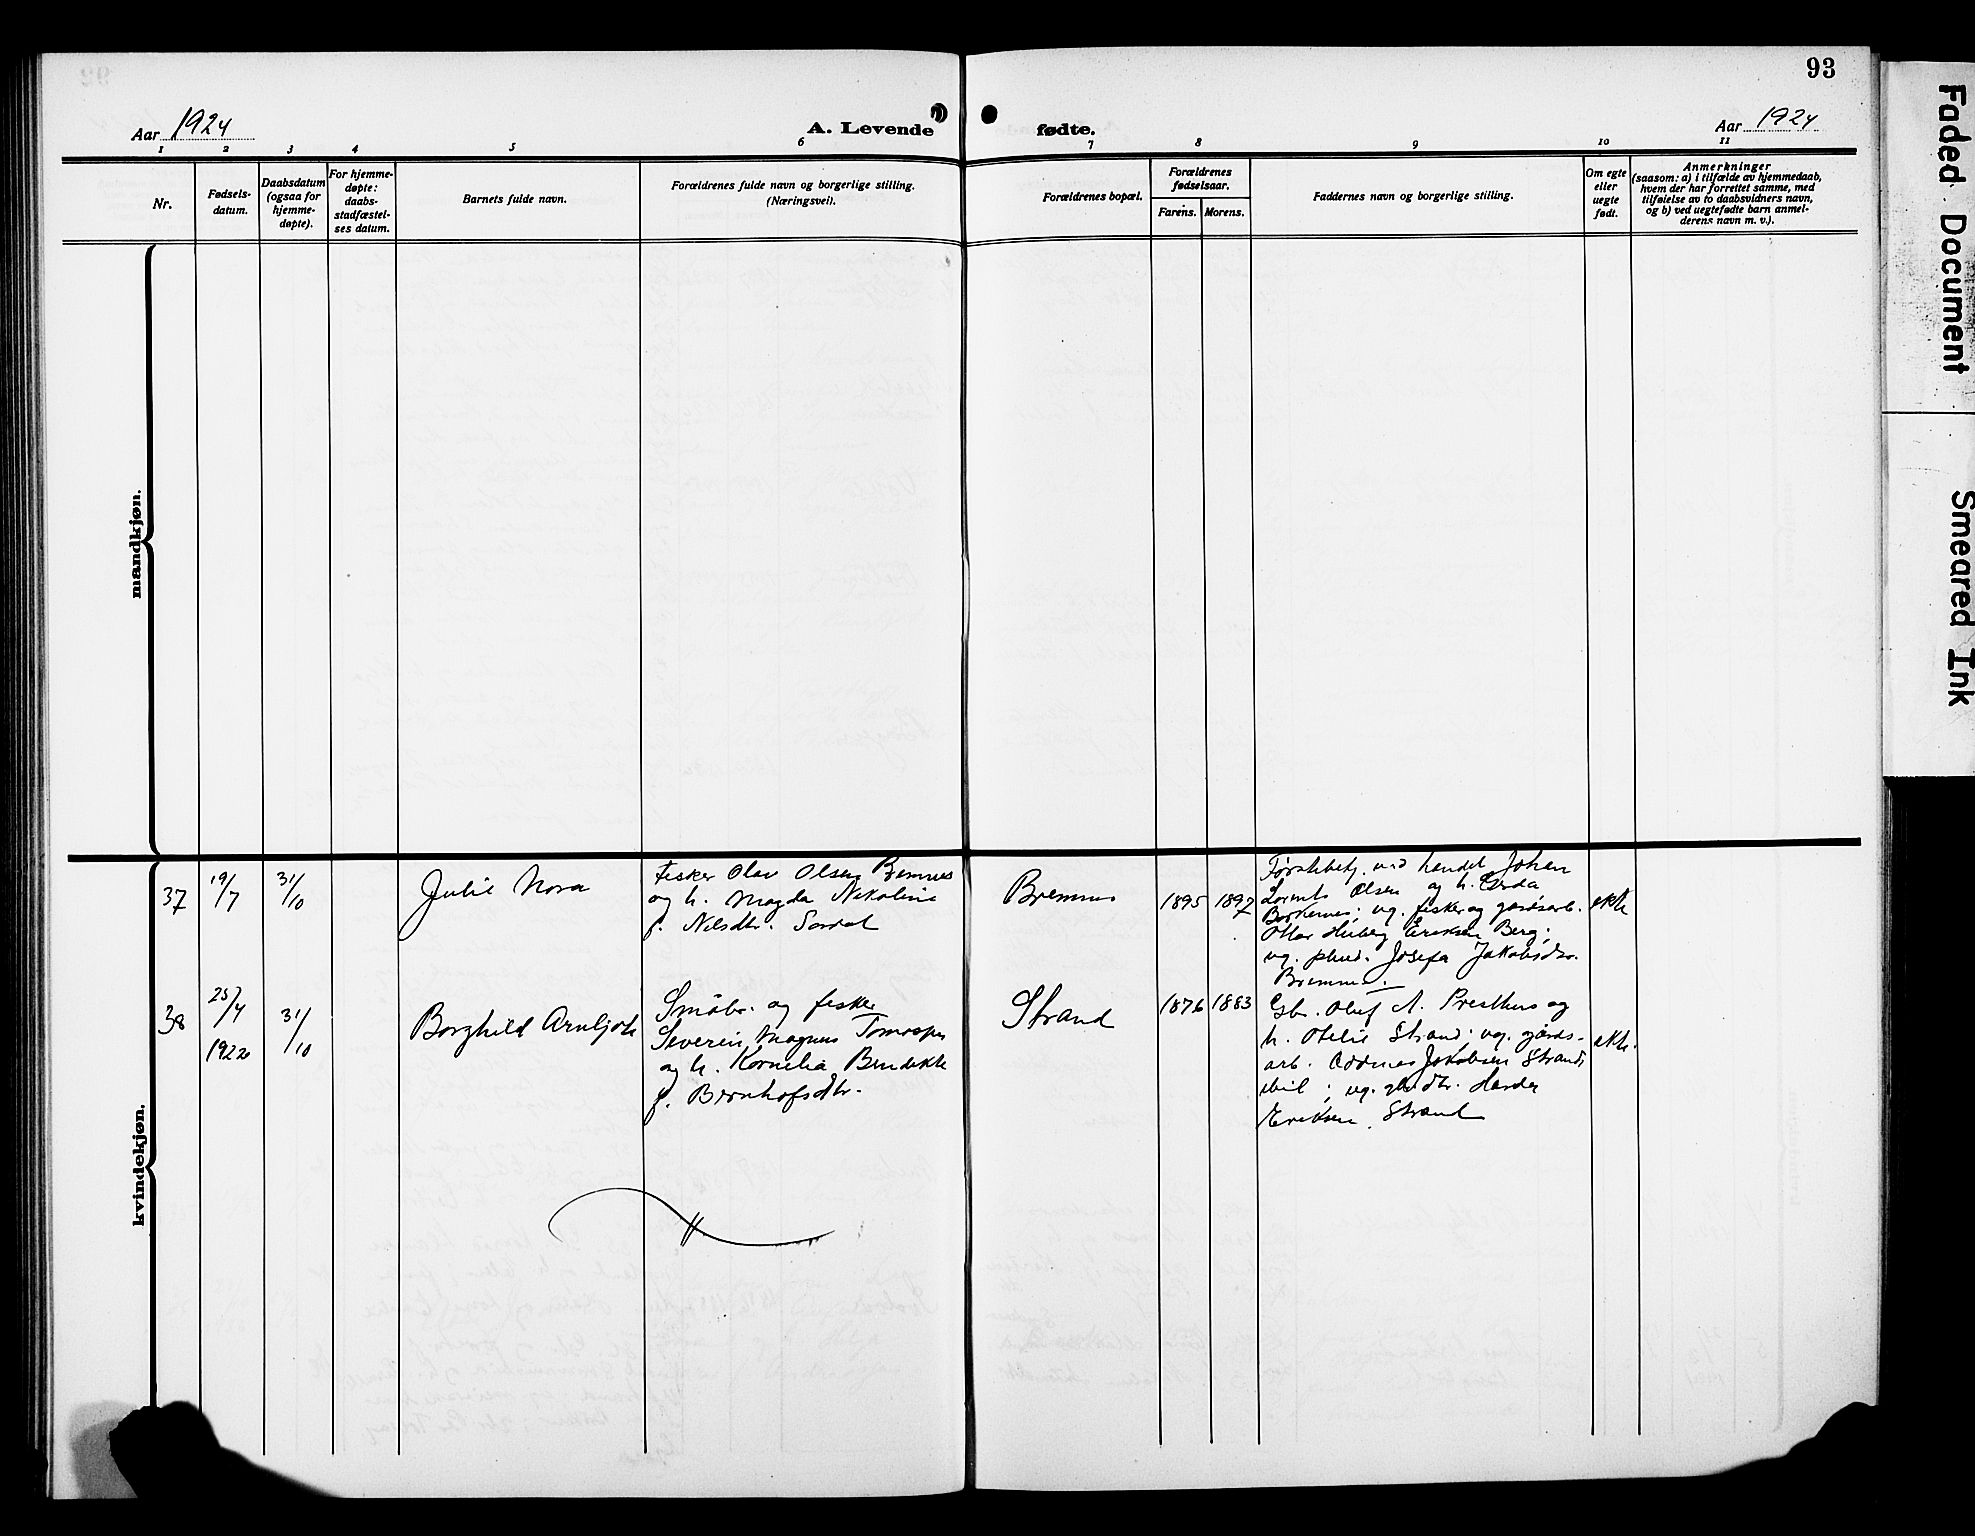 93
Aar 1924
A. Levende fødte.
Aar 1924
1 2 3 4 5 6 7 8 9 10 11
Nr.
Fødsels-
datum.
Daabsdatum
(ogsaa for
hjemme-
døpte).
For hjemme-
døpte:
daabs-
stadfæstel-
ses datum.
Barnets fulde navn.
Forældrenes fulde navn og borgerlige stilling.
(Næringsvei).
Forældrenes bopæl.
Forældrenes
fødselsaar.
Farens. Morens.
Faddernes navn og borgerlige stilling.
Om egte
eller
uegte
født.
Anmerkninger
(saasom: a) i tilfælde av hjemmedaab,
hvem der har forrettet samme, med
tilføielse av to daabsvidners navn,
og b) ved uegtefødte barn anmel-
derens navn m. v.).
mandkjøn.
kvindekjøn.
37
19/7
31/10
Julie Nora
Fisker Olav Olsen Bremnes
og h. Magda Nikoline
f. Nilsdtr. Sandal
Bremnes
1895 1897
handel Johan
Olsen og h.
ug. fisker og gaardsarb.
Ottar Eriksen Berg;
ug. Josefa Jakobsdtr.
Bremnes.
ekte
38
25/4
1922
31/10
Borghild Arnljot
Småbr. og fisker
Severin Magnus
og h. Kornelia Bendikte
f. Bernhofsdtr.
Strand
1876 1883
Gbr. Oluf A. Presthus og
h. Otelie Strand; ug. gårds-
arb. Jakobsen Strand,
ug. Handa
Eriksen, Strand
ekte.
Faded Document
Smeared Ink